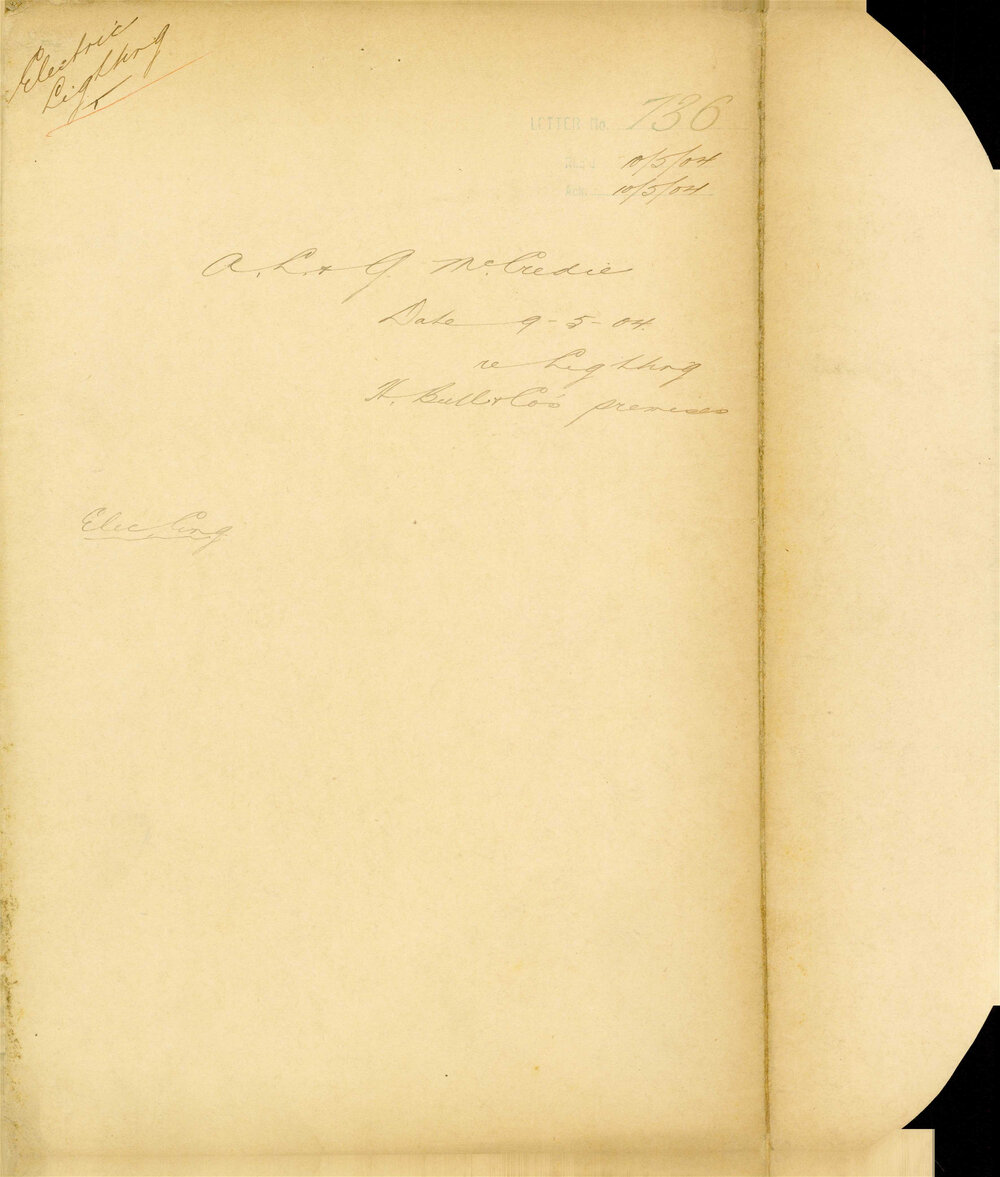 Electric
Lighting
LETTER No. 736
Rec'd 10/5/04
Ack. 10/5/04
A. L. & G. McCredie
Date 9-5-04.
re Lighting
H. Bull & Co's premises
Elec